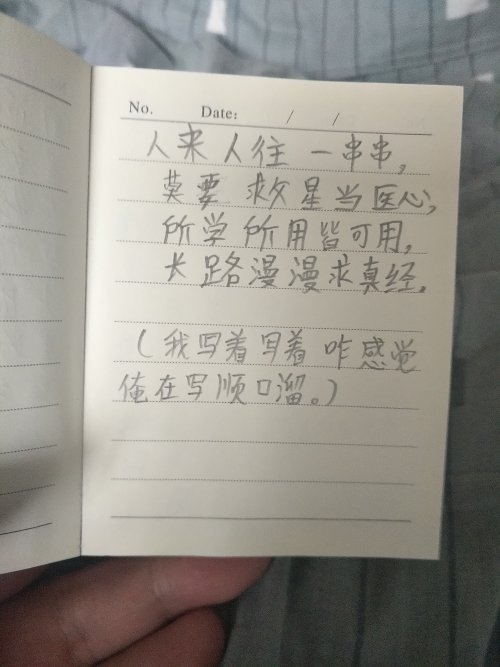 No. Date: / /
人来人往一串串，
莫要救星当医心，
所学所用皆可用，
长路漫漫求真经。
（我写着写着咋感觉
俺在写顺口溜。）